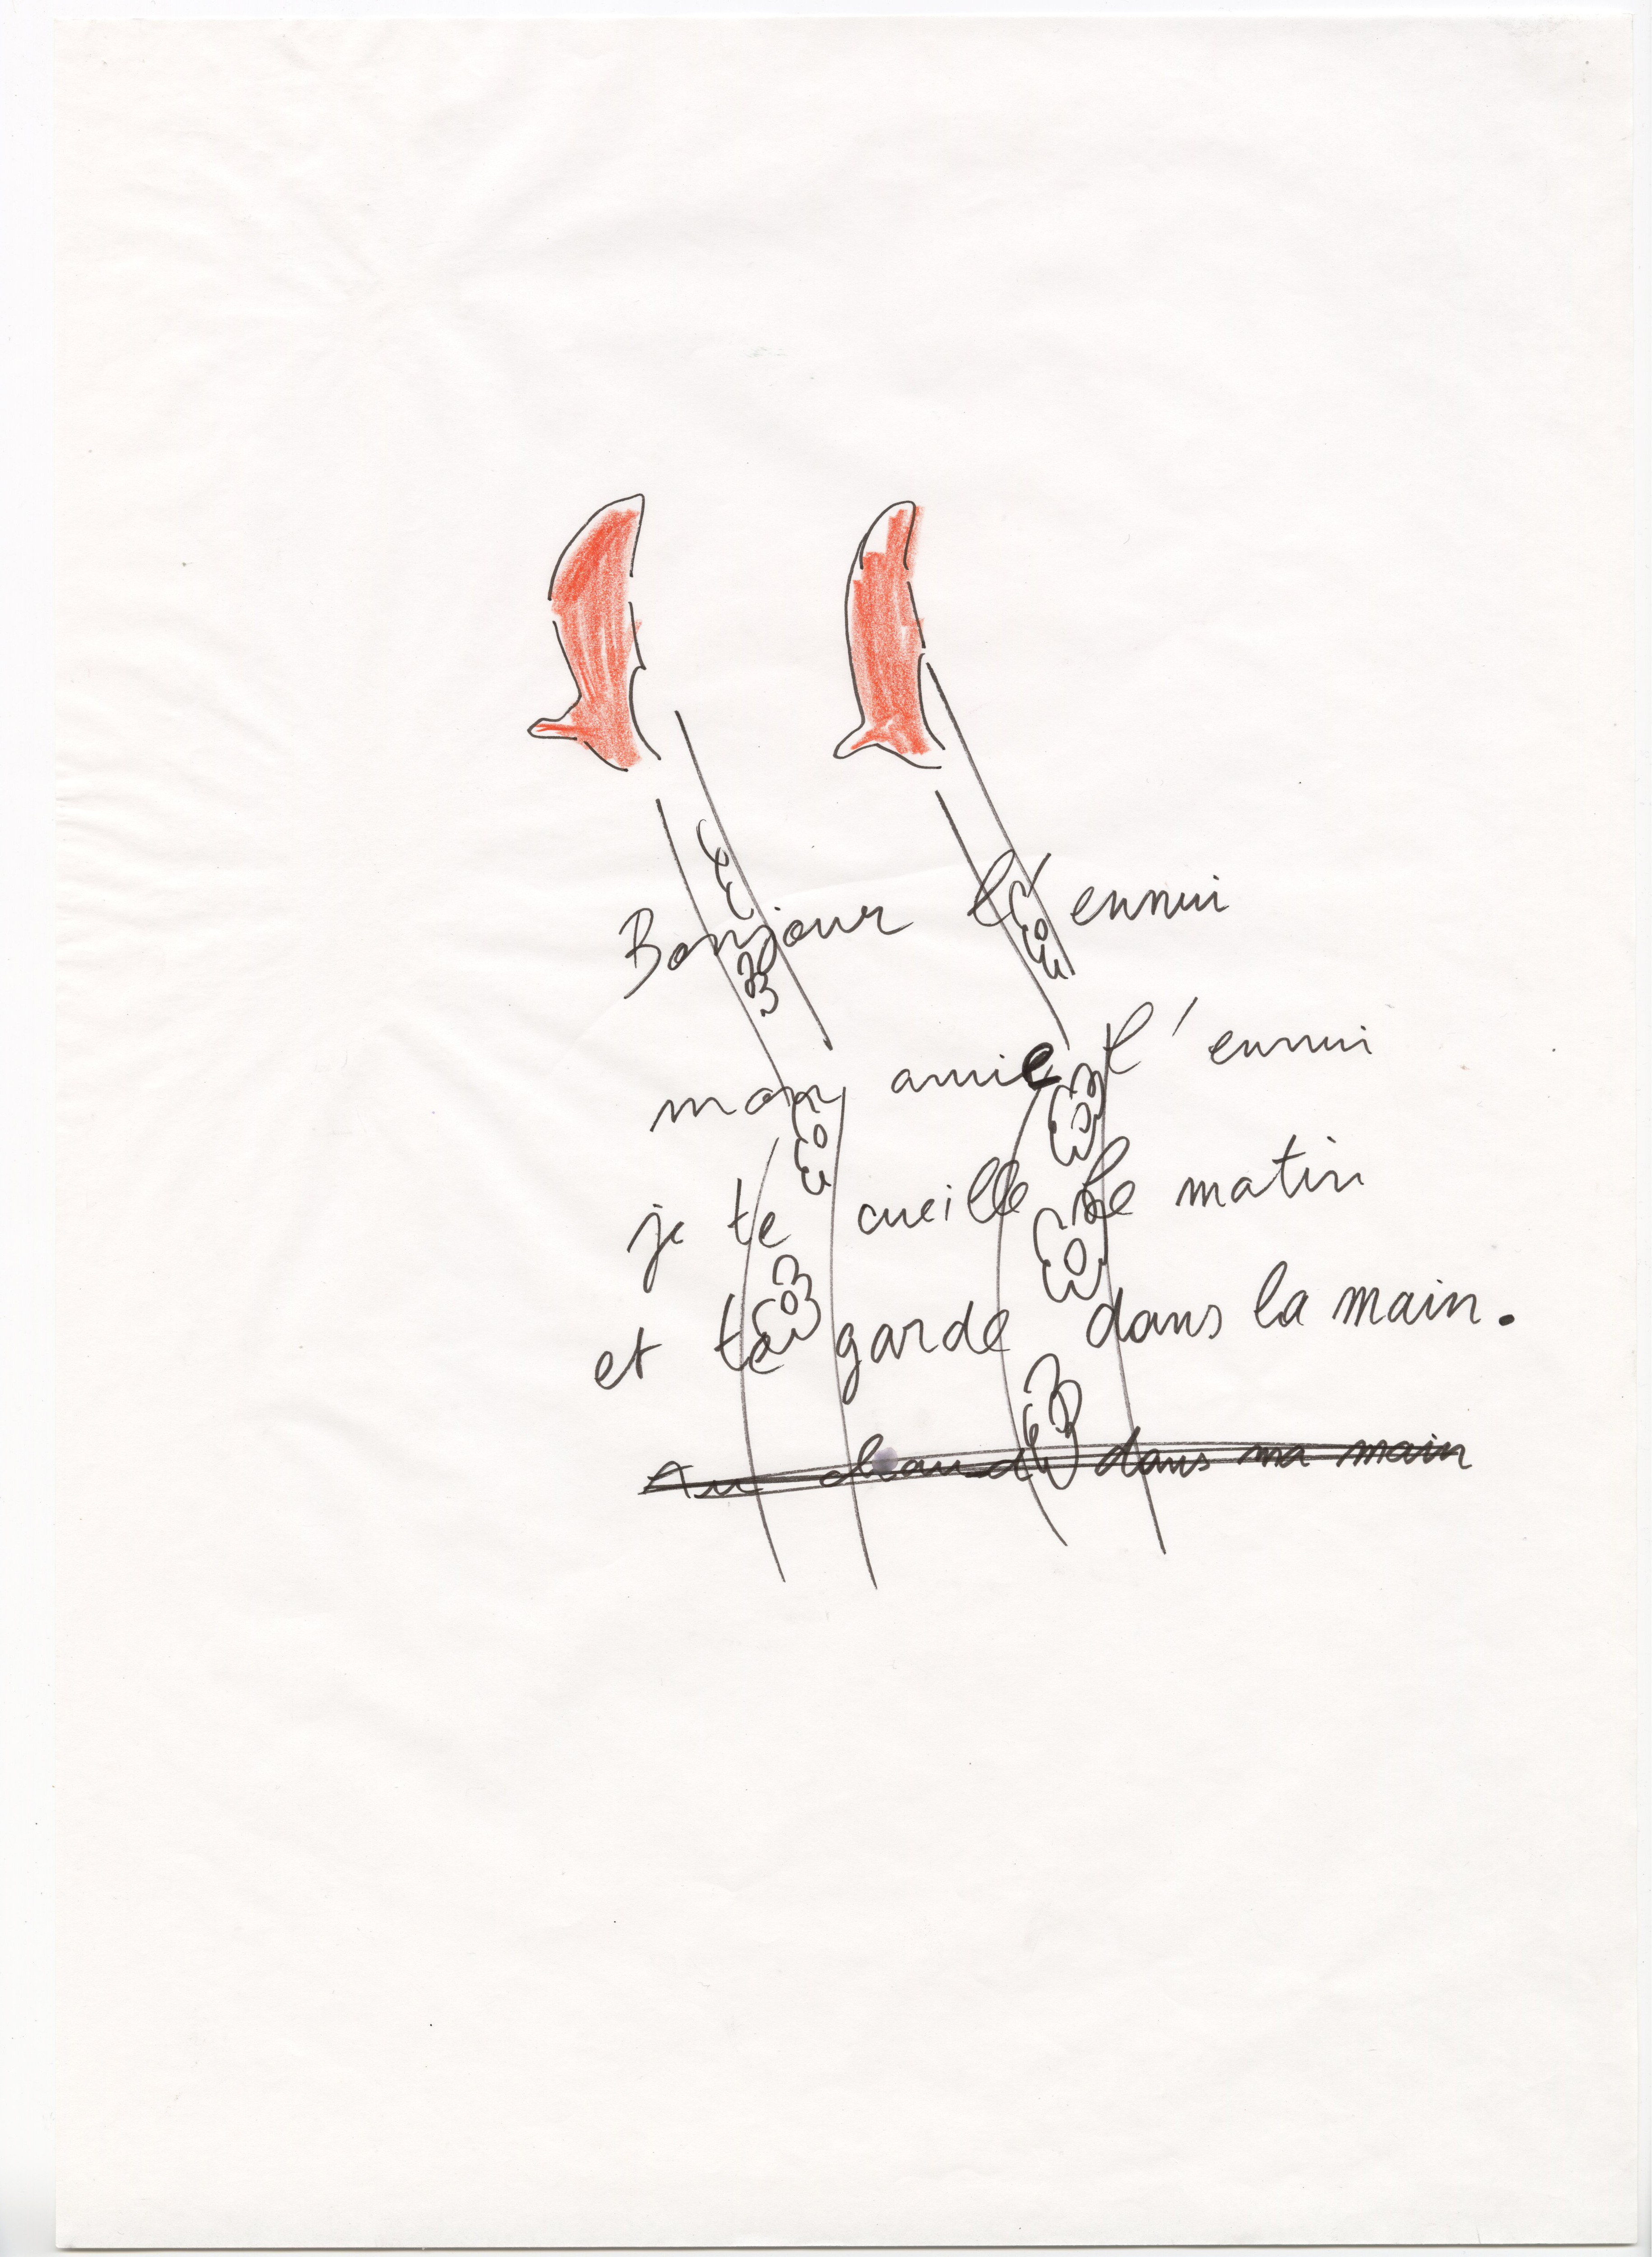 Bonjour l'ennui
mon amie l'ennui
je te cueille le matin
et te garde dans la main.
Au chaud dans ma main